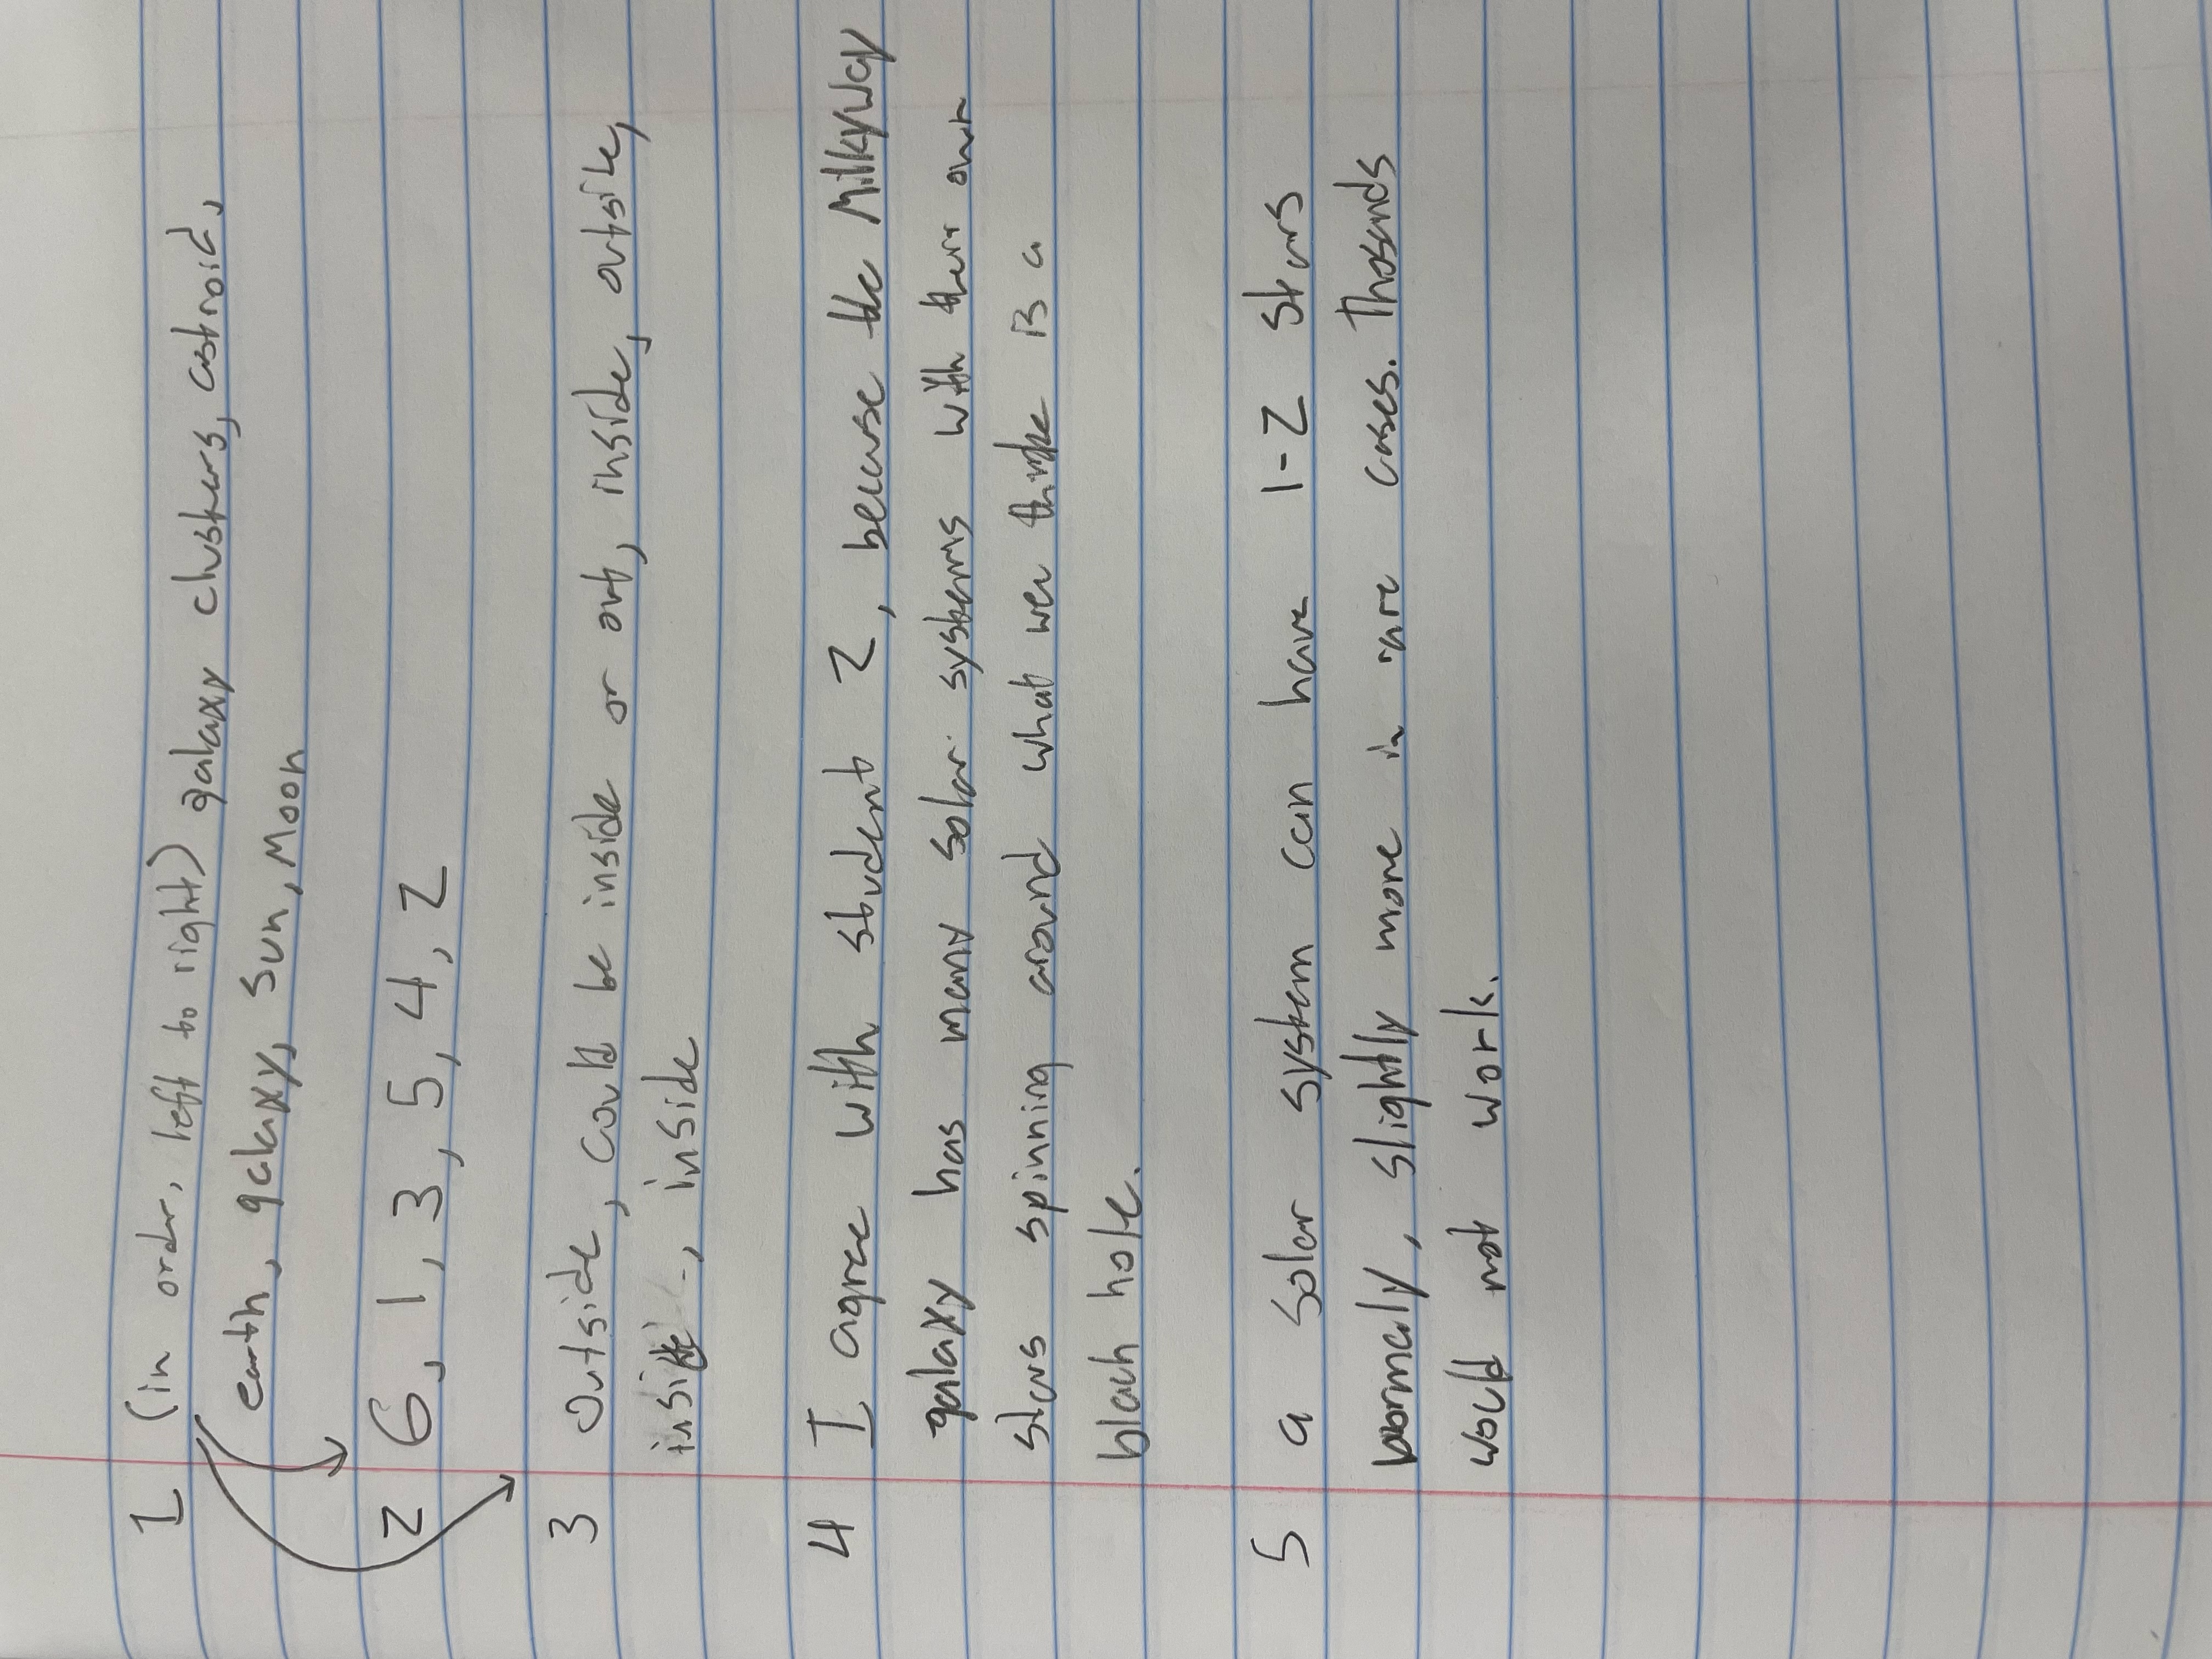 1 (in order, left to right) galaxy clusters, astroid,
earth, galaxy, sun, Moon
2 6, 1, 3, 5, 4, 2
3 Outside, could be inside or out, inside, outside,
inside -, inside
4 I agree with student 2, because the MilkyWay
galaxy has many solar systems with their own
stars spinning around what we think is a
blach hole.
5 a solar system can have 1-2 stars
normaly, slightly more in rare cases. Thosands
would not work.